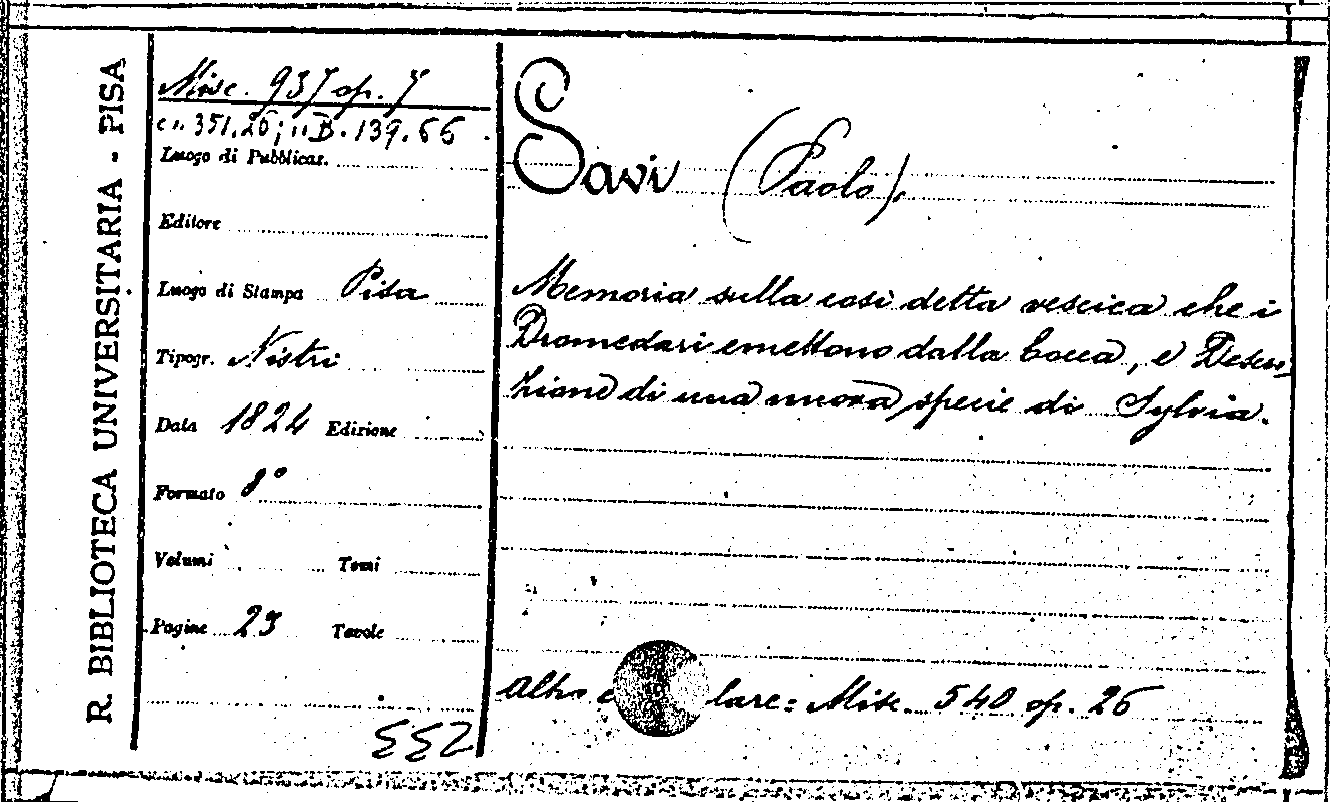 R. BIBLIOTECA UNIVERSITARIA - PISA
Misc. 937 op. 7
351.26; B. 139.66.
Luogo di Pubblicaz.
Editore
Luogo di Stampa Pisa
Tipogr. Nistri
Data 1824 Edizione
Formato 8°
Volumi Tomi
Pagine 23 Tavole
552
Savi (Paolo).
Memoria sulla così detta vescica che i
Dromedari emettono dalla bocca, e Descri-
zione di una nuova specie di Sylvia.
Altro e lare: Misc. 540 op. 26